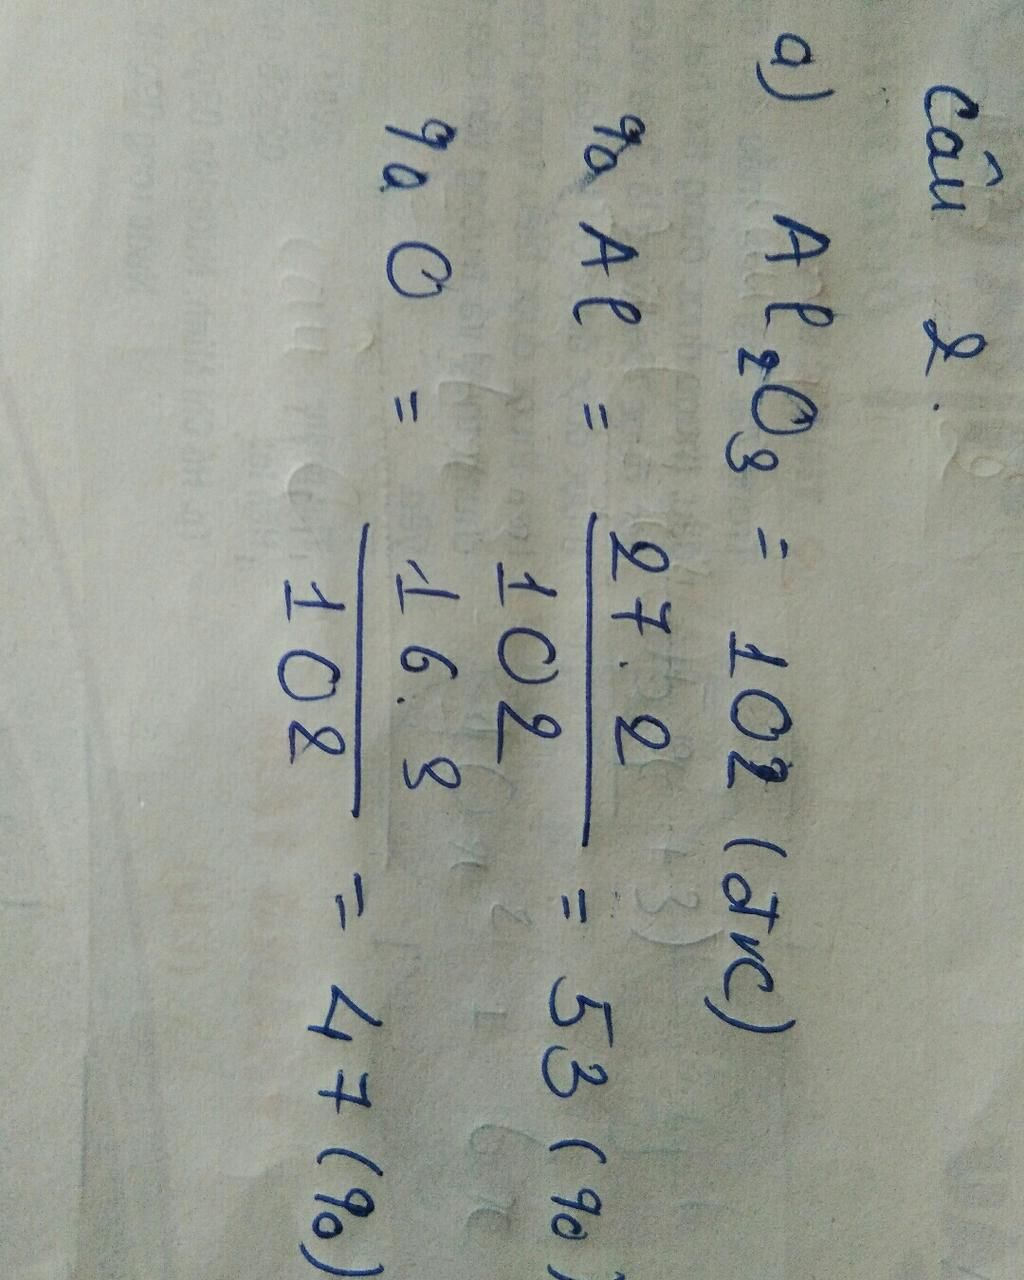 Câu 2.
a) Al₂O₃ = 102 (đvC)
% Al = 27.2 / 102 = 53 (%)
% O = 16.3 / 102 = 47 (%)